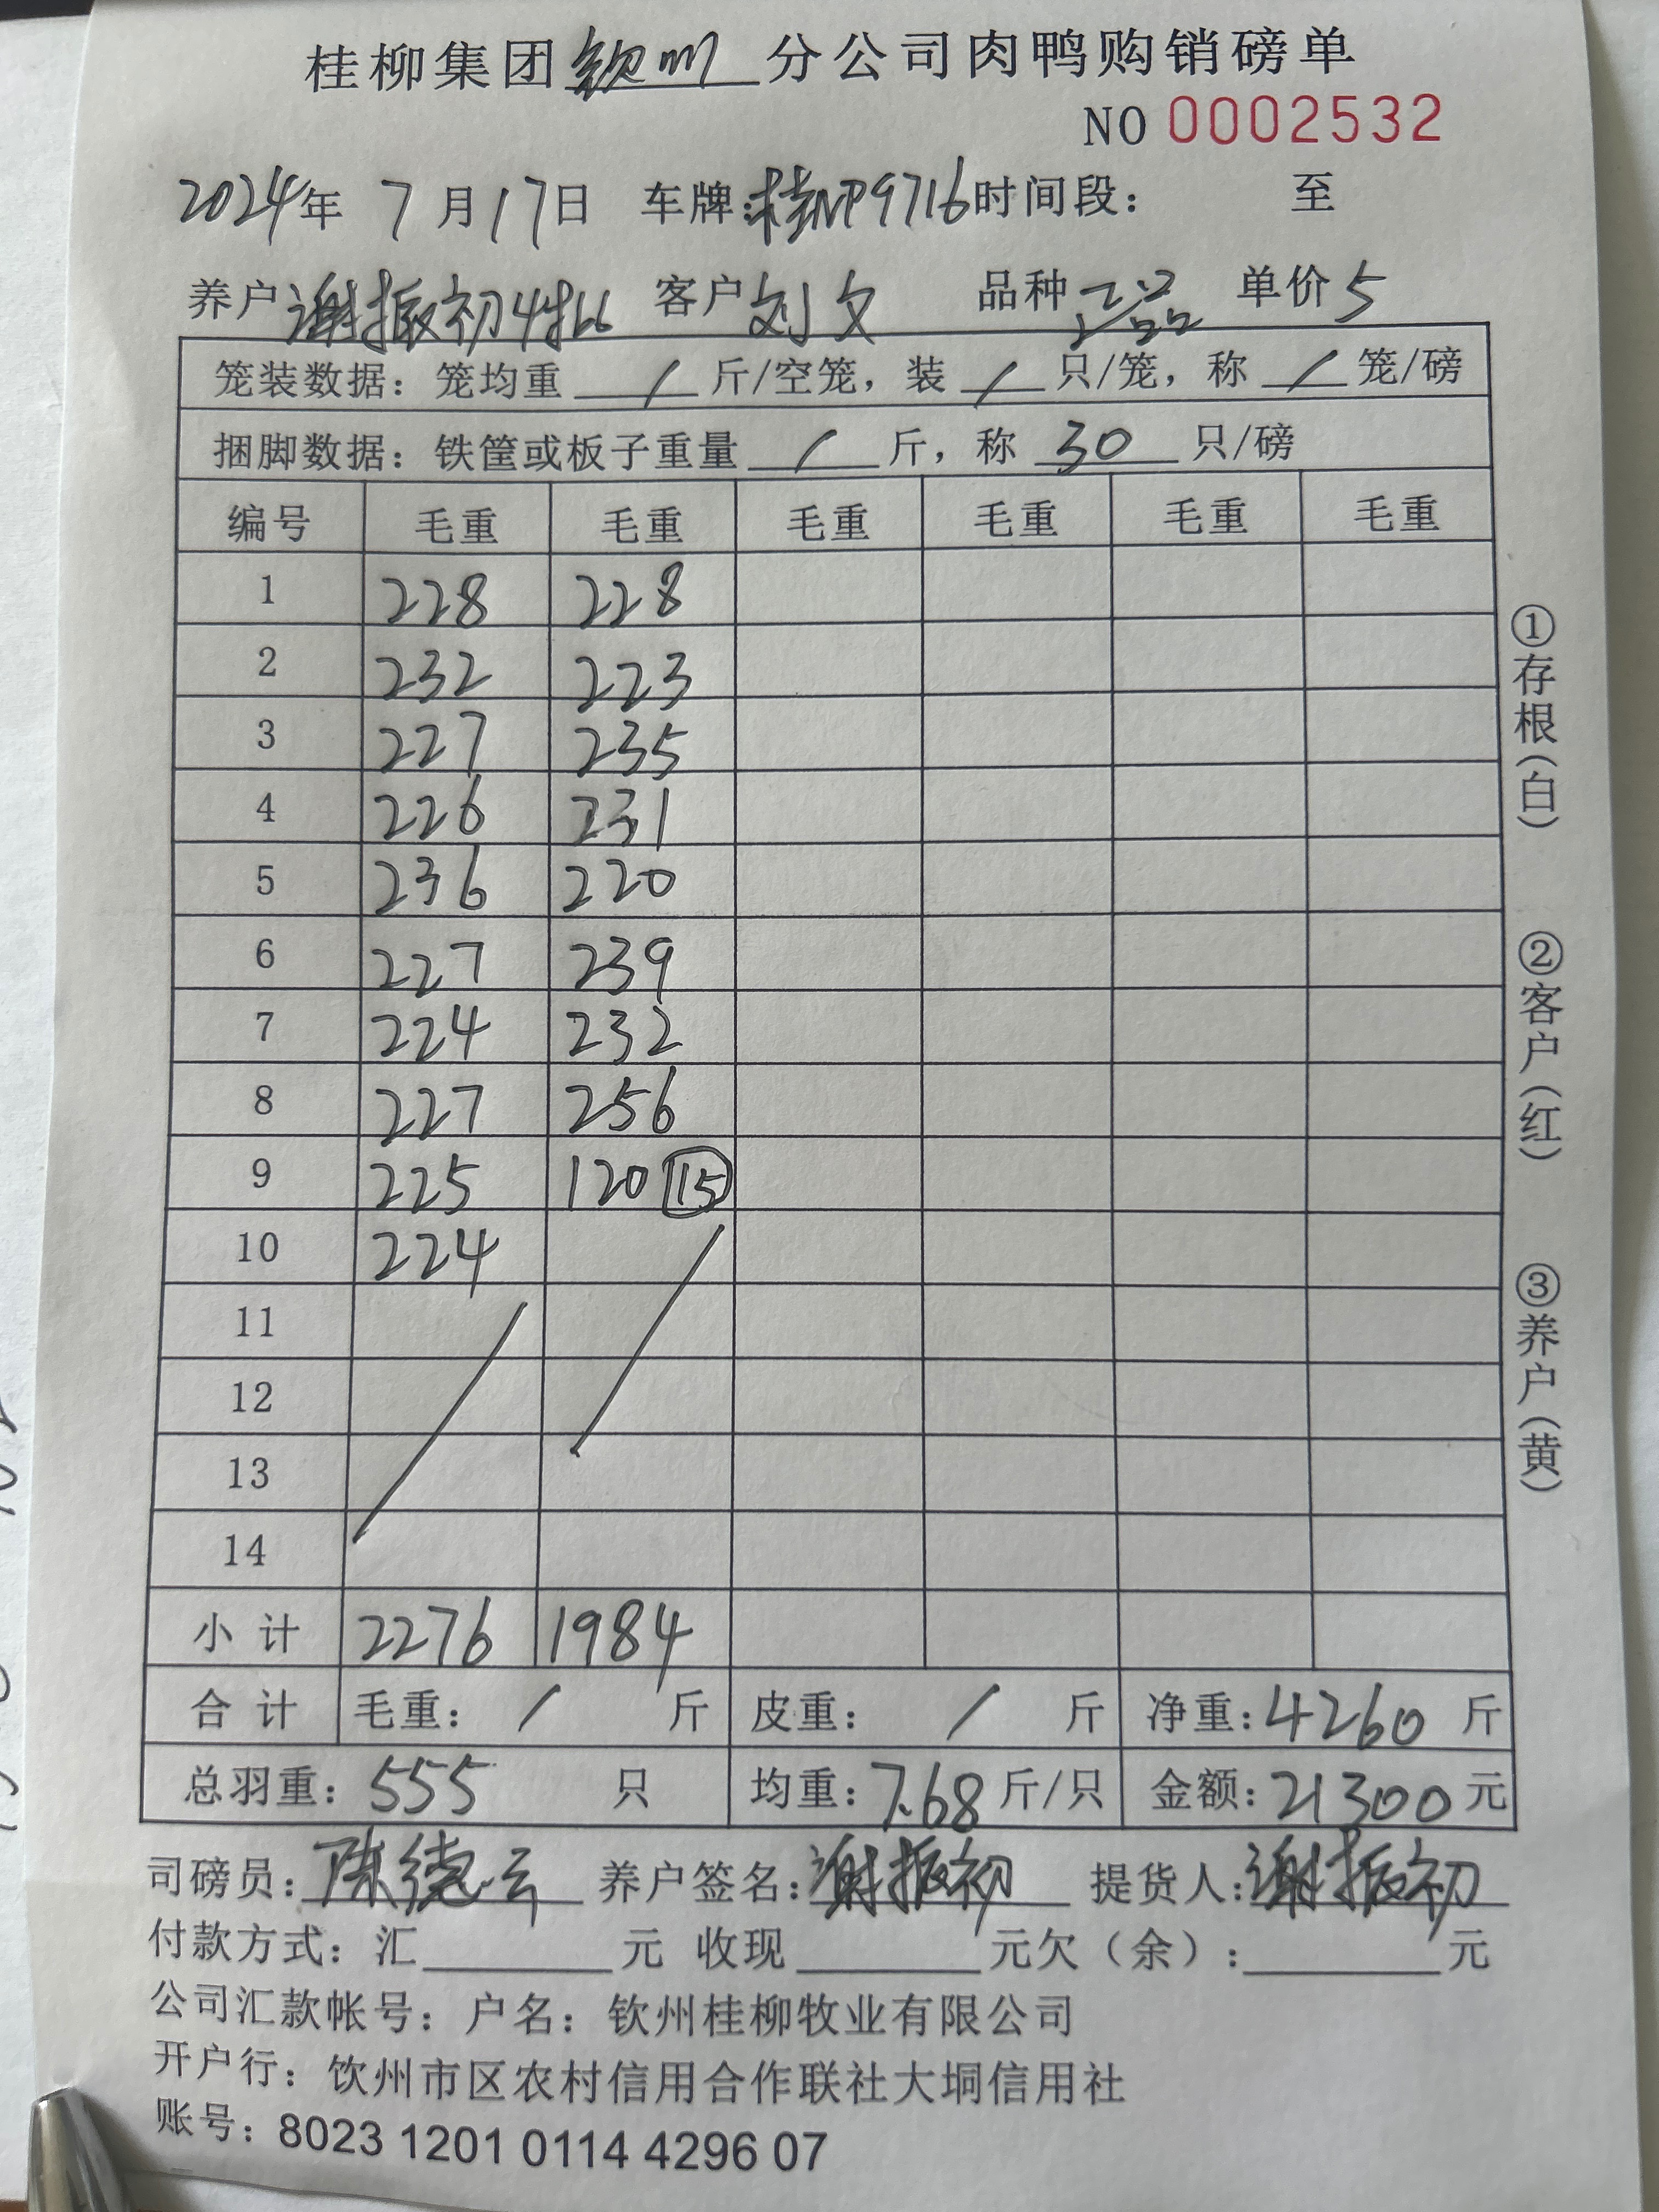 桂柳集团钦州分公司肉鸭购销磅单
NO 0002532
2024年 7月17日 车牌:桂NP9716 时间段: 至
养户 谢振初4批 客户 刘文 品种 单价 5
笼装数据: 笼均重 / 斤/空笼, 装 / 只/笼, 称 / 笼/磅
捆脚数据: 铁筐或板子重量 / 斤, 称 30 只/磅
编号 毛重 毛重 毛重 毛重 毛重 毛重
1 228 228
2 232 223
3 227 235
4 226 231
5 236 220
6 227 239
7 224 232
8 227 256
9 225 120 15
10 224
11
12
13
14
小计 2276 1984
合计 毛重: / 斤 皮重: / 斤 净重: 4260 斤
总羽重: 555 只 均重: 7.68 斤/只 金额: 21300 元
司磅员: 陈德云 养户签名: 谢振初 提货人: 谢振初
付款方式: 汇 元 收现 元欠（余）: 元
公司汇款帐号: 户名: 钦州桂柳牧业有限公司
开户行: 钦州市区农村信用合作联社大垌信用社
账号: 8023 1201 0114 4296 07
①存根(白)
②客户(红)
③养户(黄)